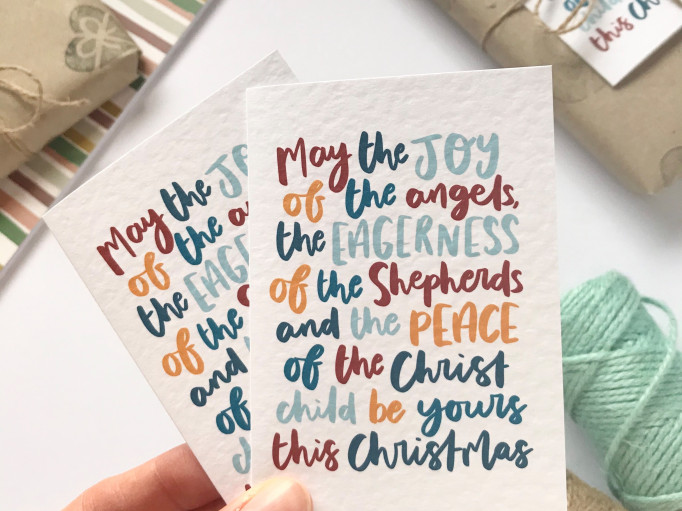 May the JOY
of the angels,
the EAGERNESS
of the Shepherds
and the PEACE
of the Christ
child be yours
this Christmas
May the JO
of the a
the EAGE
of the
and
of
this Ch